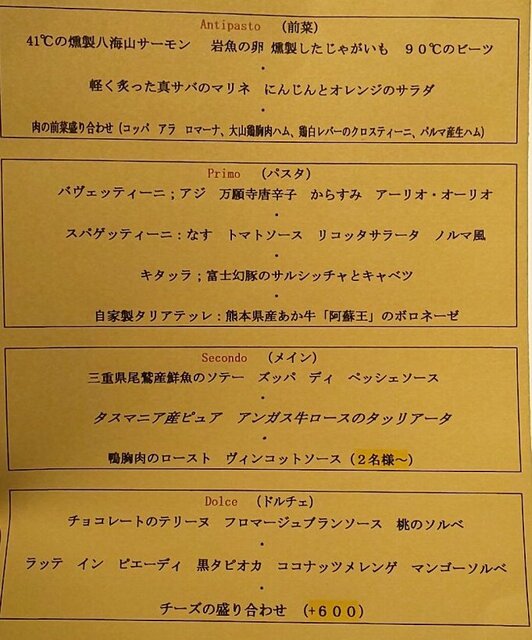 Antipasto (前菜)
41℃の燻製八海山サーモン 岩魚の卵 燻製したじゃがいも 90℃のビーツ
・
軽く炙った真サバのマリネ にんじんとオレンジのサラダ
・
肉の前菜盛り合わせ (コッパ アラ ロマーナ、大山鶏胸肉ハム、鶏白レバーのクロスティーニ、パルマ産生ハム)
Primo (パスタ)
バヴェッティーニ;アジ 万願寺唐辛子 からすみ アーリオ・オーリオ
・
スパゲッティーニ:なす トマトソース リコッタサラータ ノルマ風
・
キタッラ;富士幻豚のサルシッチャとキャベツ
・
自家製タリアテッレ:熊本県産あか牛「阿蘇王」のボロネーゼ
Secondo (メイン)
三重県尾鷲産鮮魚のソテー ズッパ ディ ペッシェソース
・
タスマニア産ピュア アンガス牛ロースのタッリアータ
・
鴨胸肉のロースト ヴィンコットソース (2名様~)
Dolce (ドルチェ)
チョコレートのテリーヌ フロマージュブランソース 桃のソルベ
・
ラッテ イン ピエーディ 黒タピオカ ココナッツメレンゲ マンゴーソルベ
・
チーズの盛り合わせ (+600)